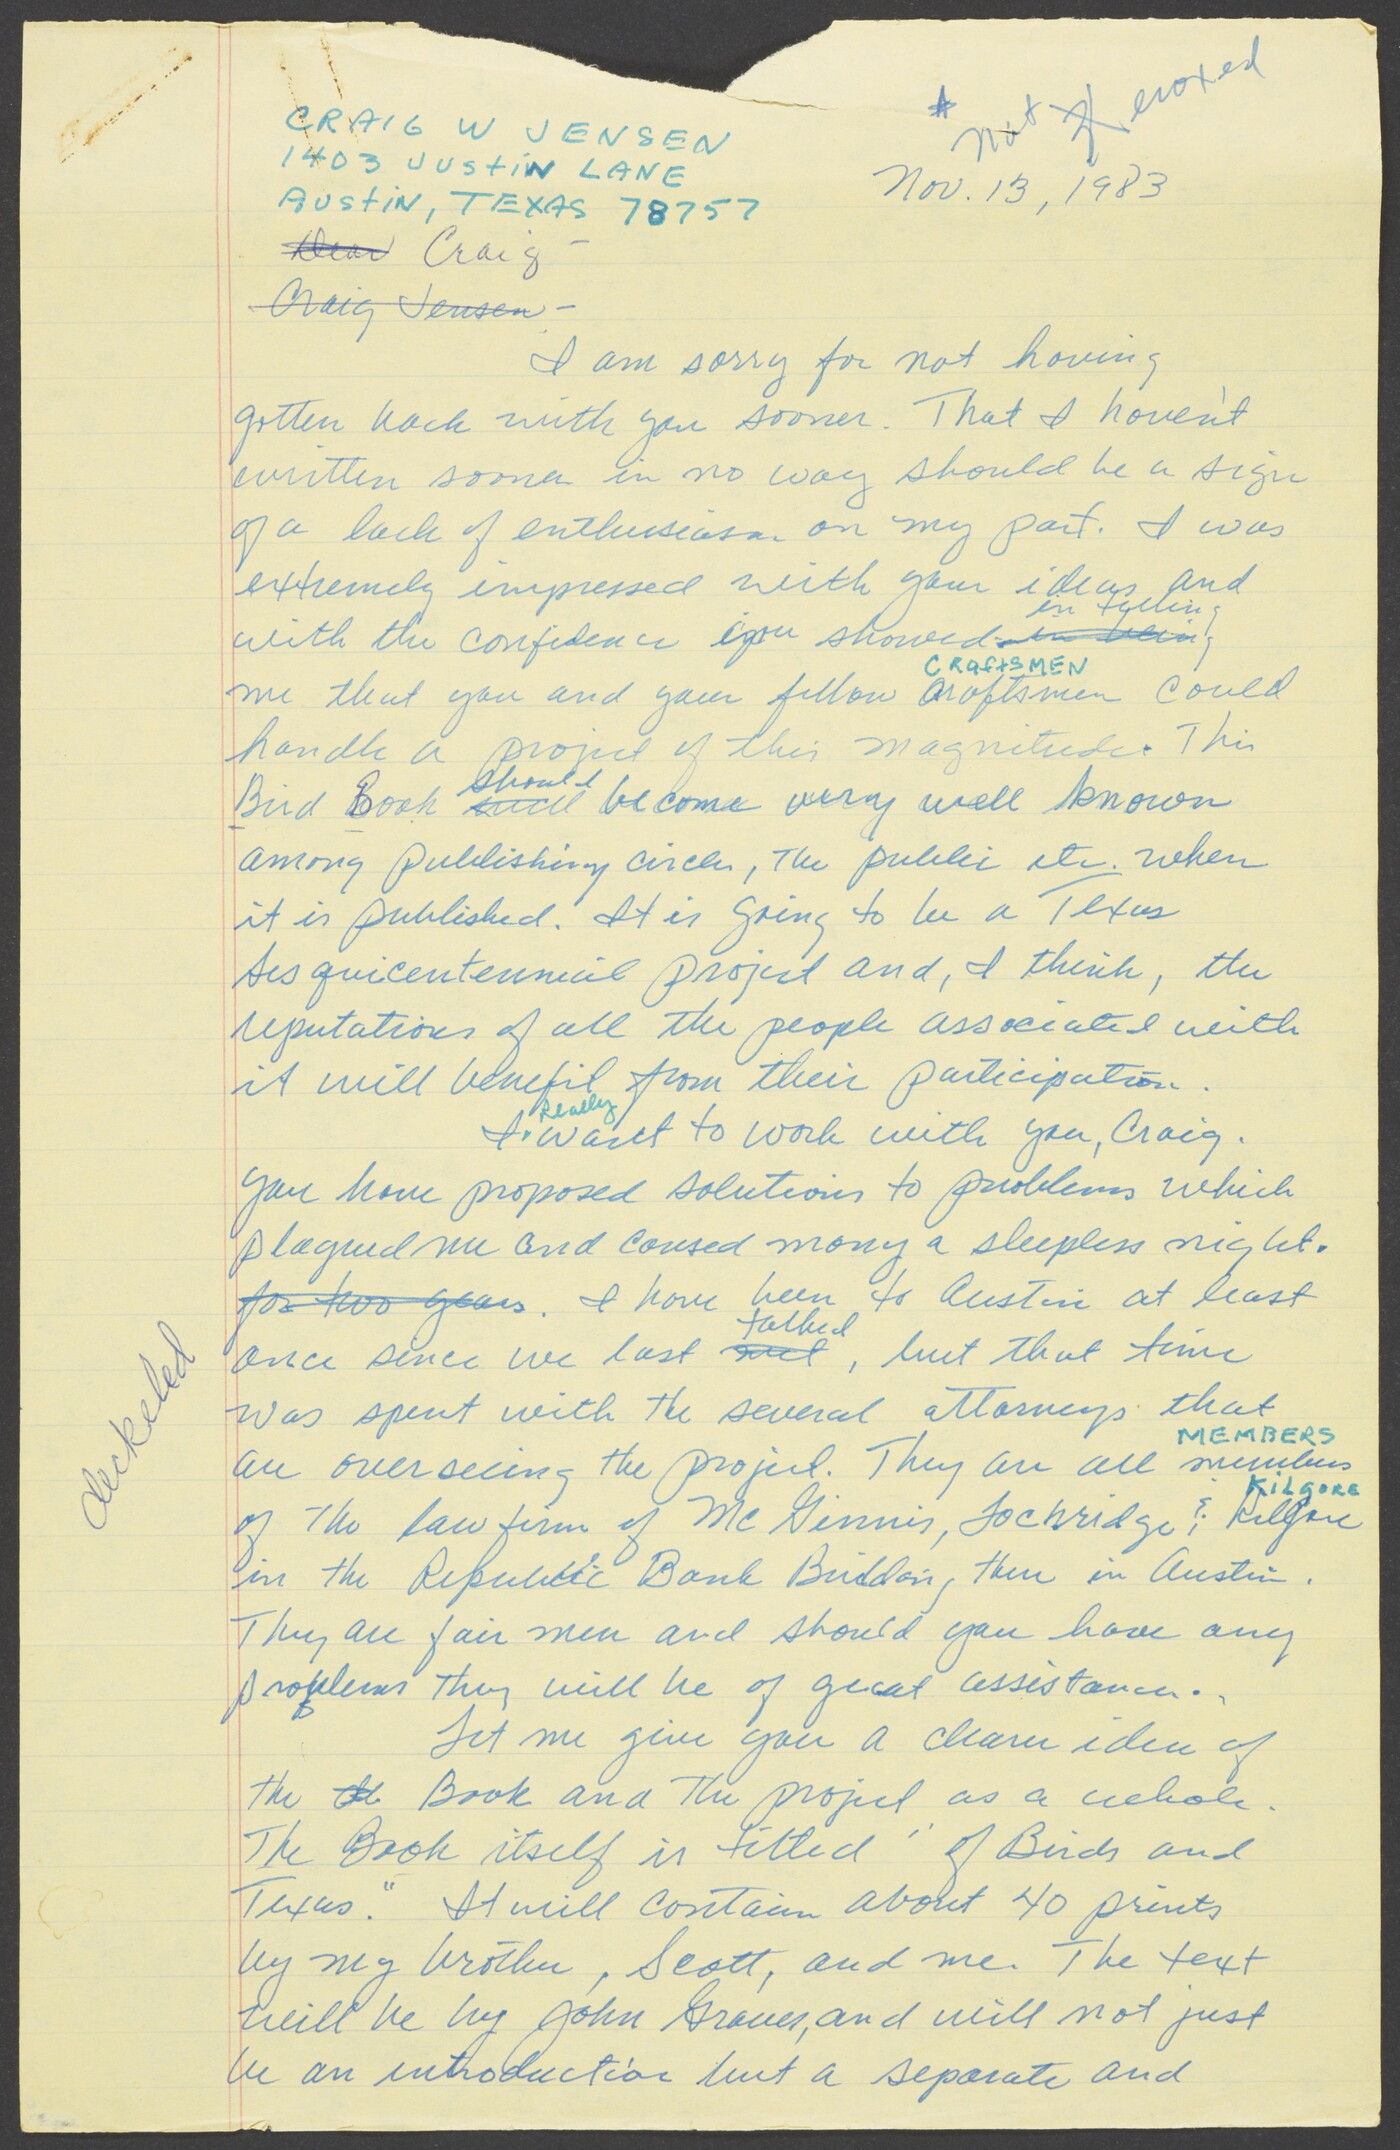 * Not Xeroxed
CRAIG W JENSEN
1403 JUSTIN LANE
AUSTIN, TEXAS 78757
Nov. 13, 1983
Dear Craig -
Craig Jensen -
I am sorry for not having
gotten back with you sooner. That I haven't
written sooner in no way should be a sign
of a lack of enthusiasm on my part. I was
extremely impressed with your ideas and
in telling
with the confidence you showed in
CRAFTSMEN
me that you and your fellow craftsmen could
handle a project of this magnitude. This
should
Bird Book will become very well known
among publishing circles, the public etc. when
it is published. It is going to be a Texas
Sesquicentennial project and, I think, the
reputations of all the people associated with
it will benefit from their participation.
Really
I want to work with you, Craig.
You have proposed solutions to problems which
plagued me and caused many a sleepless night.
for two years. I have been to Austin at least
talked
once since we last met, but that time
was spent with the several attorneys that
MEMBERS
are overseeing the project. They are all members
KILGORE
of the law firm of McGinnis, Lochridge & Kilgore
in the Republic Bank Building there in Austin.
They are fair men and should you have any
problems they will be of great assistance.
Let me give you a clearer idea of
the Book and the project as a whole.
The Book itself is titled "Of Birds and
Texas." It will contain about 40 prints
by my brother, Scott, and me. The text
will be by John Graves, and will not just
be an introduction but a separate and
deckeled